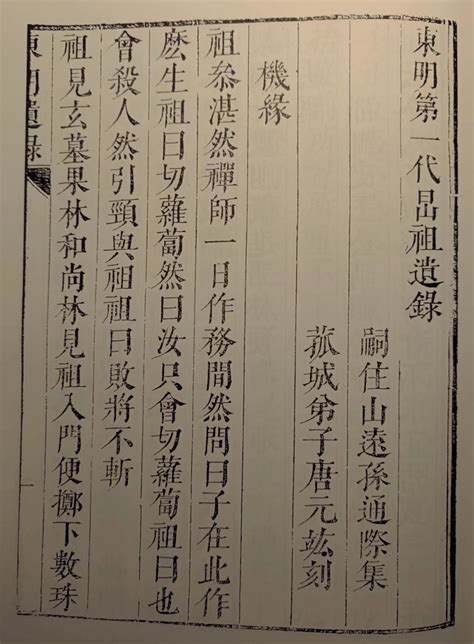 東明第一代旵祖遺錄
嗣住山遠孫通際集
菰城弟子唐元竑刻
機緣
祖叅湛然禪師一日作務間然問曰子在此作
麽生祖曰切蘿蔔然曰汝只會切蘿蔔祖曰也
會殺人然引頸與祖祖曰敗將不斬
祖見玄墓果林和尚林見祖入門便擲下數珠
東明遺錄